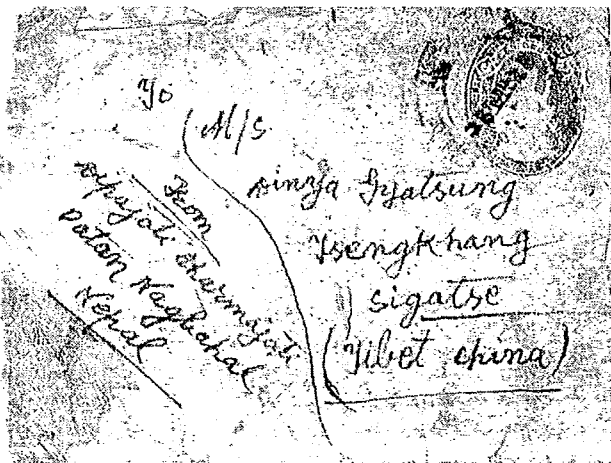 To
M/s
Sinya Gyatsung
Tsengkhang
Sigatse
(Tibet china)
From
Dipajoti dharmajoti
Patan Nagbahal
Nepal